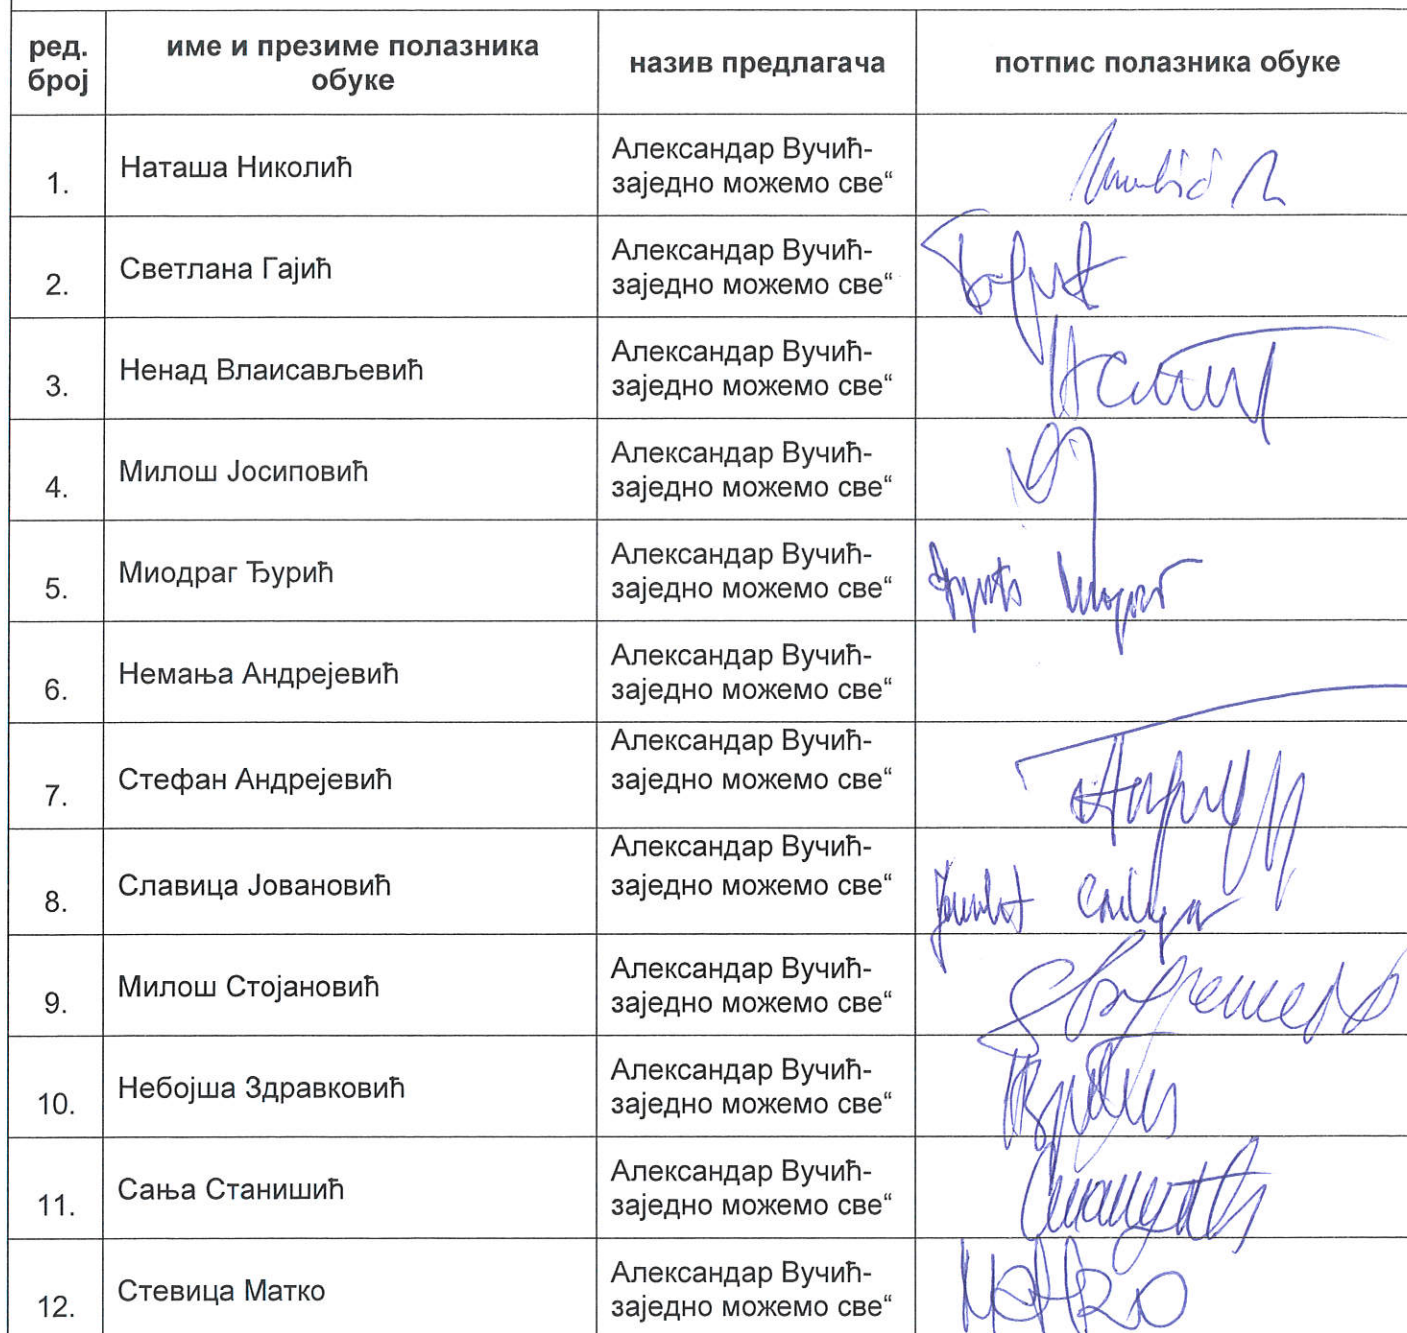 ред. број
име и презиме полазника обуке
назив предлагача
потпис полазника обуке
1.
Наташа Николић
Александар Вучић-
заједно можемо све“
2.
Светлана Гајић
Александар Вучић-
заједно можемо све“
3.
Ненад Влаисављевић
Александар Вучић-
заједно можемо све“
4.
Милош Јосиповић
Александар Вучић-
заједно можемо све“
5.
Миодраг Ђурић
Александар Вучић-
заједно можемо све“
6.
Немања Андрејевић
Александар Вучић-
заједно можемо све“
7.
Стефан Андрејевић
Александар Вучић-
заједно можемо све“
8.
Славица Јовановић
Александар Вучић-
заједно можемо све“
9.
Милош Стојановић
Александар Вучић-
заједно можемо све“
10.
Небојша Здравковић
Александар Вучић-
заједно можемо све“
11.
Сања Станишић
Александар Вучић-
заједно можемо све“
12.
Стевица Матко
Александар Вучић-
заједно можемо све“